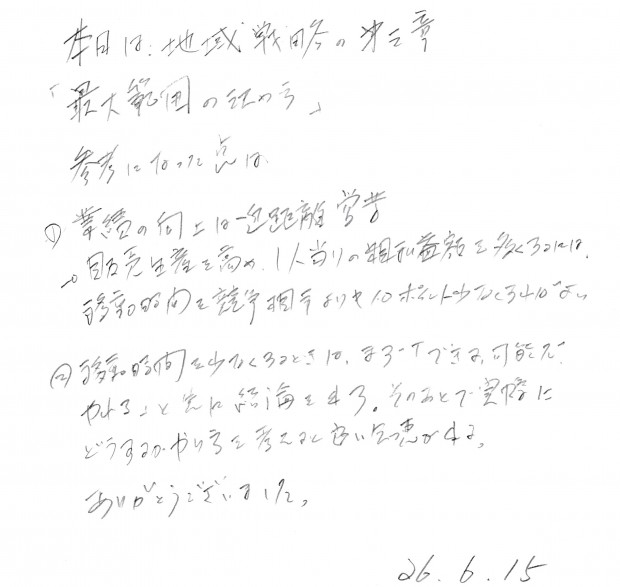 本日は、地域戦略の第三章
「最大範囲の決め方」
参考になった点は
① 業績の向上は近距離営業
→販売生産を高め、1人当りの粗利益額を多くするには、
移動時間を競争相手より10ポイント少なくするしかない。
② 移動時間を少なくするときは、まず「できる、可能だ
やれる」と先に結論を出す。そのあとで実際に
どうするかやり方を考えると良い知恵が出る。
ありがとうございました。
26.6.15